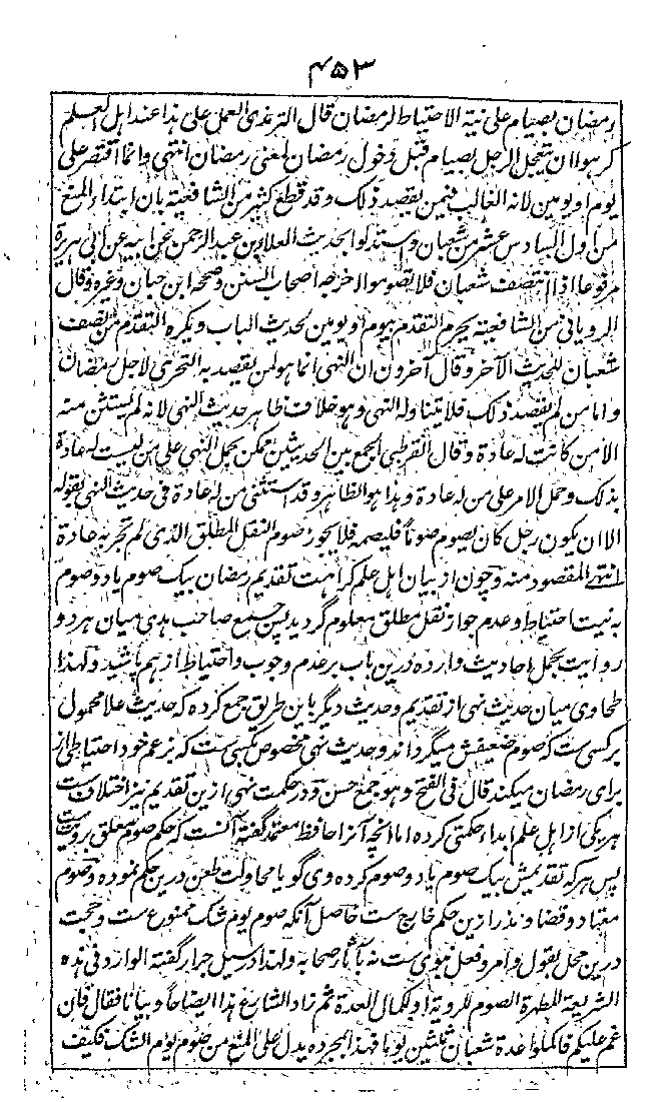 ۴۵۳
رمضان بصیام علی نیة الاحتیاط لرمضان قال الترمذی العمل علی هذا عند اهل العلم
کرهوا ان یتعجل الرجل بصیام قبل دخول رمضان لمعنی رمضان انتهی وانما اقتصر علی
یوم او یومین لانه الغالب فیمن یقصد ذلک وقد قطع کثیر من الشافعیة بان ابتداء المنع
من اول السادس عشر من شعبان واستدلوا بحدیث العلاء بن عبد الرحمن عن ابیه عن ابی هریرة
مرفوعا اذا انتصف شعبان فلا تصوموا اخرجه اصحاب السنن وصححه ابن حبان وغیره وقال
الرویانی من الشافعیة یحرم التقدم بیوم او یومین لحدیث الباب ویکره التقدم من نصف
شعبان للحدیث الآخر وقال آخرون ان النهی انما هو لمن یقصد به التحری لاجل رمضان
واما من لم یقصد ذلک فلا یتناوله النهی وهو خلاف ظاهر حدیث النهی لانه لم یستثن منه
الا من کانت له عادة وقال القرطبی الجمع بین الحدیثین ممکن بحمل النهی علی من لیست له عادة
بذلک وحمل الامر علی من له عادة وهذا هو الظاهر وقد استثنی من له عادة فی حدیث النهی بقوله
الا ان یکون رجل کان یصوم صوما فلیصمه فلا یجوز صوم النفل المطلق الذی لم تجر به عادة
انتهی المقصود منه وچون از بیان اهل علم کراهت تقدیم رمضان بیک صوم یا دو صوم
به نیت احتیاط وعدم جواز نفل مطلق معلوم گردید پس جمیع صاحب هدی میان هر دو
روایت بحمل احادیث وارده درین باب بر عدم وجوب واحتیاط از هم پاشید ولهذا
طحاوی میان حدیث نهی از تقدیم وحدیث دیگر باین طریق جمع کرده که حدیث علا محمول
بر کسی ست که صوم ضعیفش میگرداند وحدیث نهی مخصوص بکسی ست که بزعم خود احتیاطی از
برای رمضان میکند قال فی الفتح وهو جمع حسن ودر حکمت نهی ازین تقدیم نیز اختلاف ست
هر یکی از اهل علم ابداء حکمتی کرده اما آنچه آنرا حافظ معتمد گفته آنست که حکم صوم معلق برویت ست
پس هر که تقدیمش بیک صوم یا دو صوم کرده وی گویا محاولت طعن درین حکم نموده وصوم
معتاد وقضا ونذر ازین حکم خارج ست حاصل آنکه صوم یوم شک ممنوع ست وحجت
درین محل بقول وامر وفعل نبوی ست نه بآثار صحابه ولهذا در سیل جرار گفته الوارد فی هذه
الشریعة المطهرة الصوم للرویة او لکمال العدة ثم زاد الشارع هذا ایضاحا وبیانا فقال فان
غم علیکم فاکملوا عدة شعبان ثلثین یوما فهذا بمجرده یدل علی المنع من صوم یوم الشک فکیف